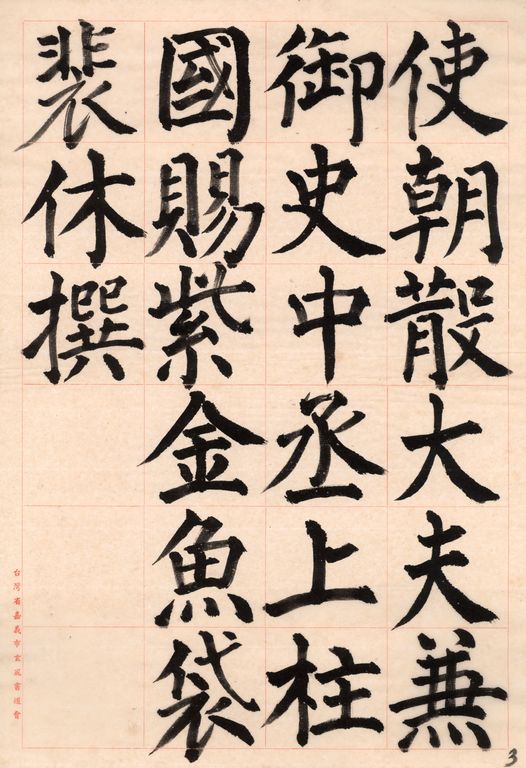 使朝散大夫兼
御史中丞上柱
國賜紫金魚袋
裴休撰
台灣省嘉義市玄風書道會
3